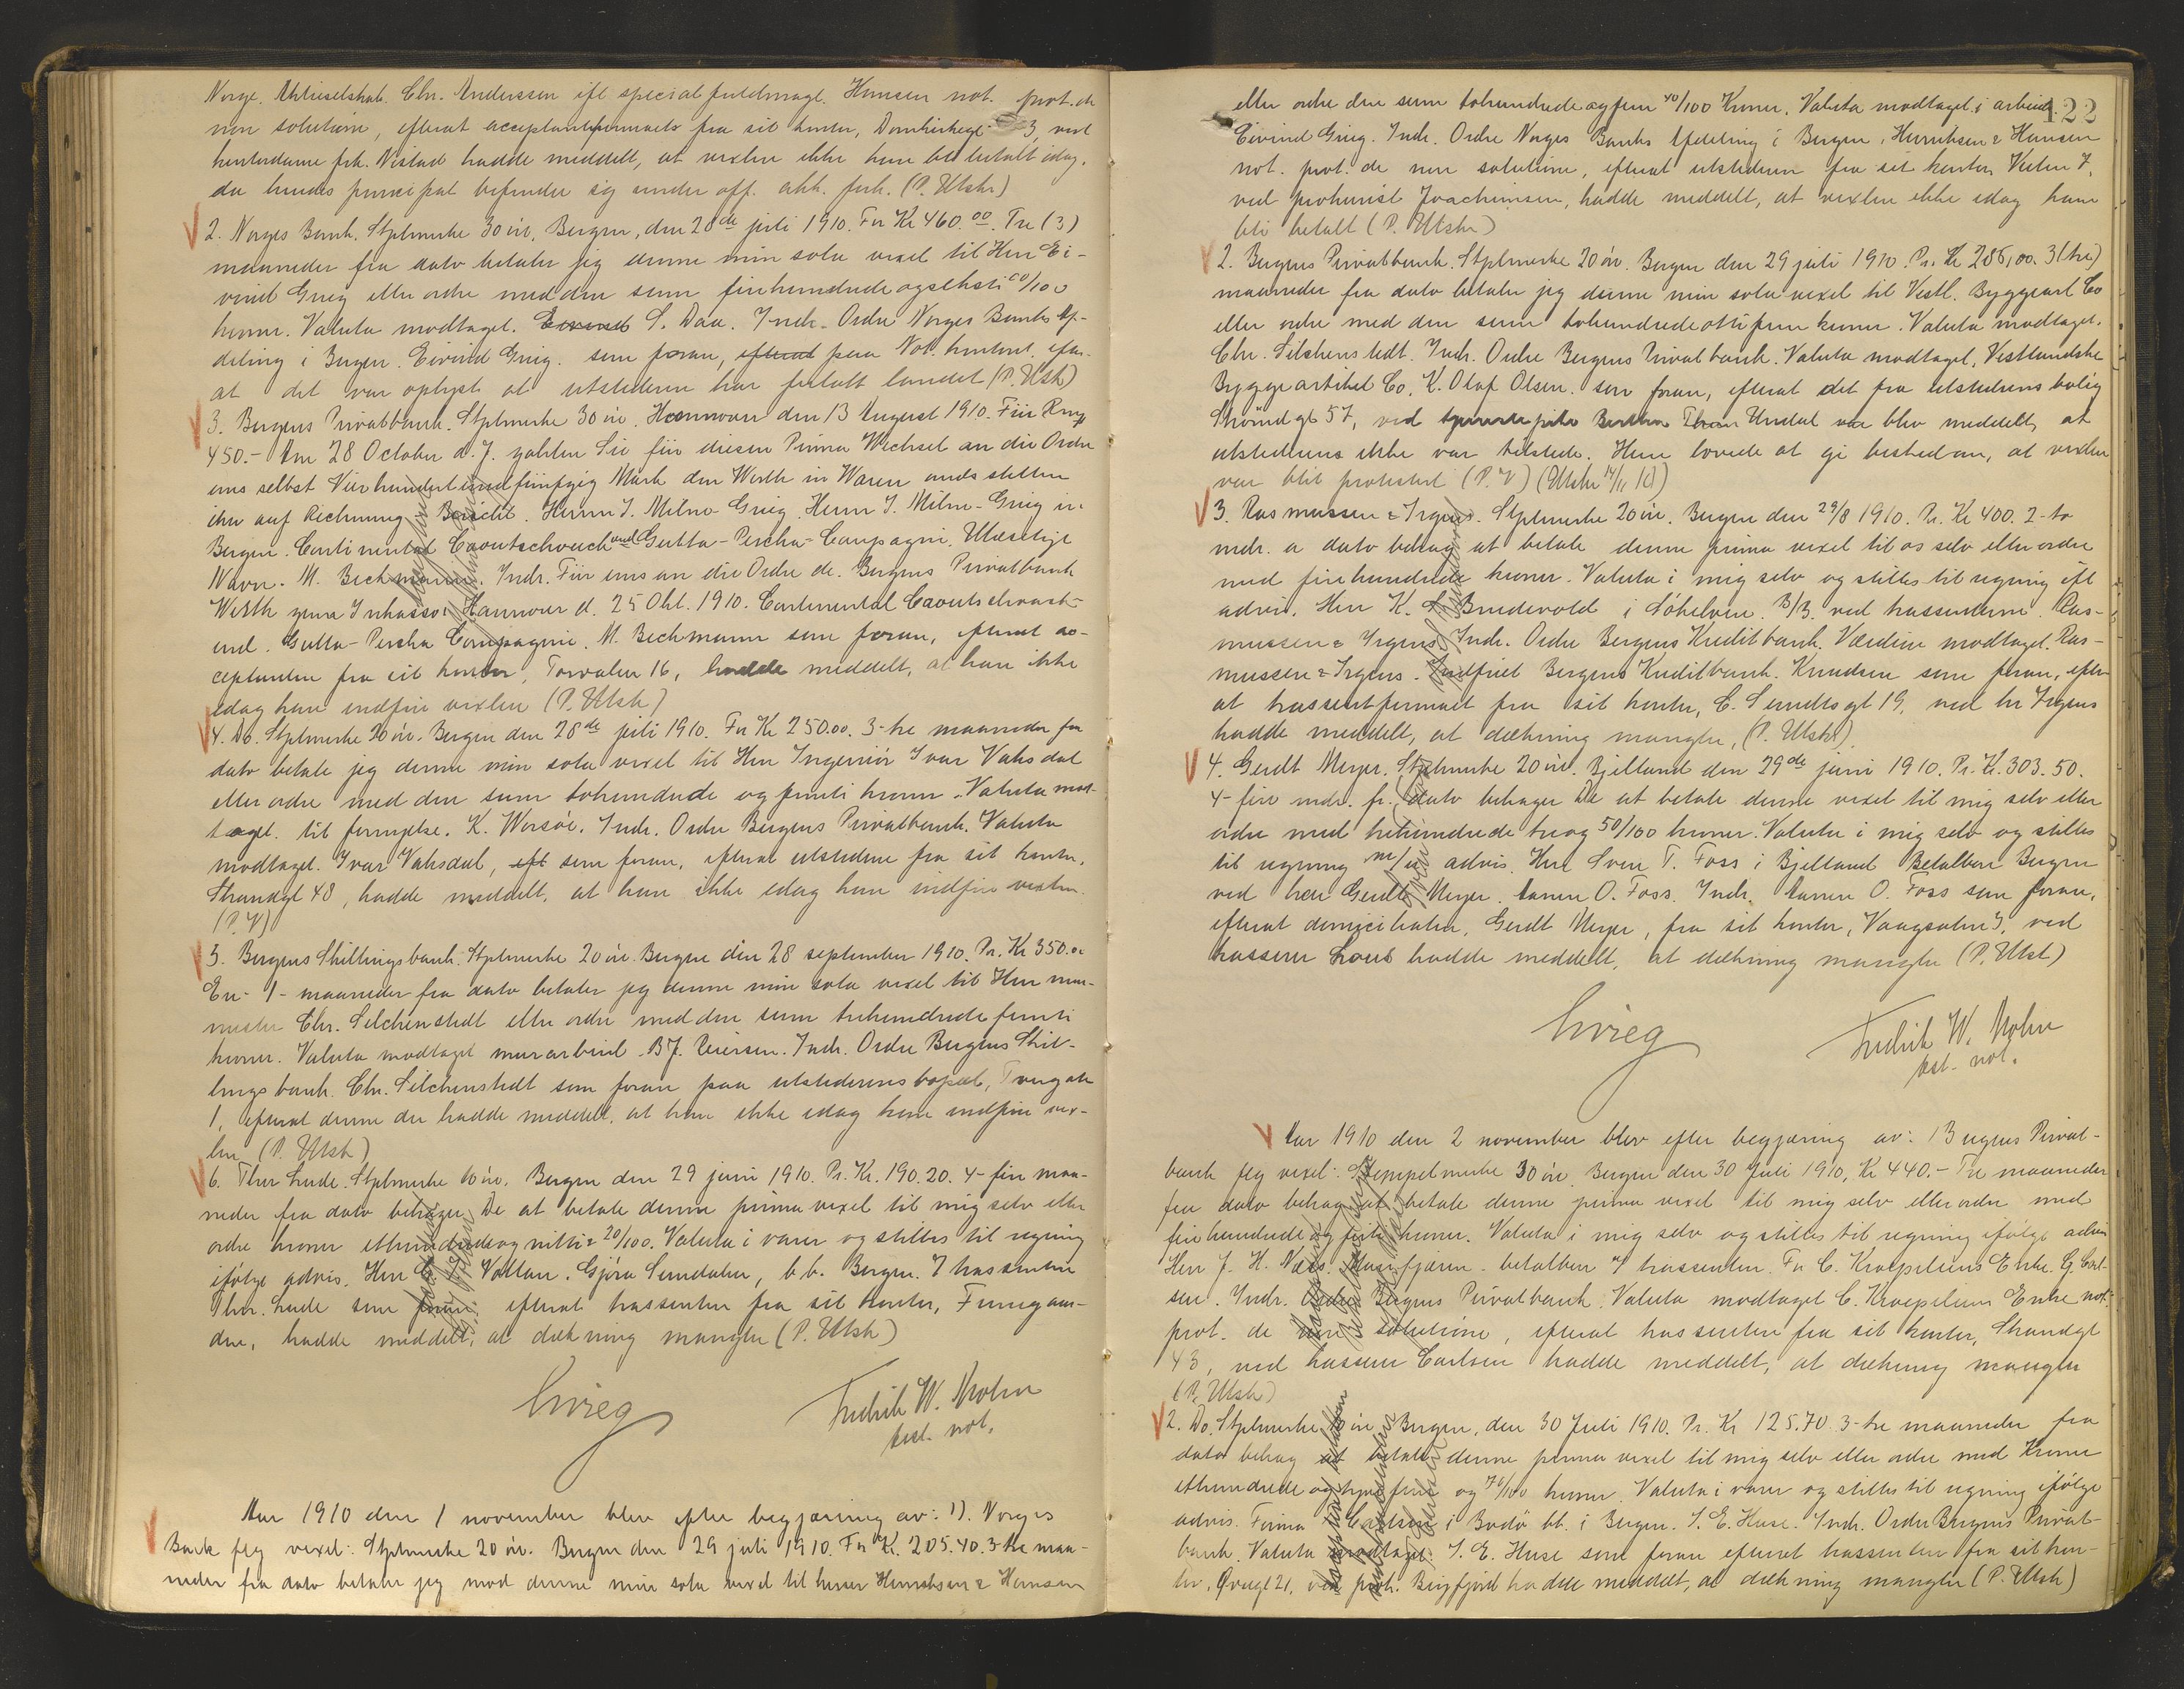 Norge. Aktieselskab. Chr. Anderssen ifl special fuldmagt. Hansen not. prot. de
non solutione, efterat acceptantfirmaet fra sit kontor, Domkirkegt. 3, ved
kontordame frk. Nistad hadde meddelt, at vexlen ikke kan bli betalt idag,
da hendes principal befinder sig under off. akk. forh. (P. Utskr)
2. Norges Bank. Stplmerke 30 øre. Bergen, den 28de juli 1910. For Kr 460.00. Tre (3)
maaneder fra dato betaler jeg denne min sola vexel til Herr Ei-
vind Grieg eller ordre med den sum firehundredeogseksti 00/100
kroner. Valuta modtaget. Eivind S. Daa. Indr. Ordre Norges Banks Af-
deling i Bergen. Eivind Grieg. som foran, efterat paa Not. kontoret, efter-
at det var oplyst at utstederen har forlatt landet (P. Utsk)
3. Bergens Privatbank. Stplmerke 30 øre. Hannover den 13 August 1910. Für Rmk
450.- Am 28 October d. J. zahlen Sie für diesen Prima Wechsel an die Ordre
uns selbst Vierhundertundfünfzig Mark den Werth in Waren und stellen
ihn auf Rechnung Bericht. Herrn J. Milne-Grieg. Herrn J. Milne-Grieg in
Bergen. Continental Caoutschouck und Gutta-Percha-Compagnie. Ulæselige
Navn. M. Beckmann. Indr. Für uns an die Ordre de. Bergens Privatbank
Werth zum Inkasso. Hannover d. 25 Okt. 1910. Continental Caoutschouck-
und. Gutta-Percha Compagnie. M. Beckmann som foran, efterat ac-
ceptanten fra sit kontor, Torvalm 16, hadde meddelt, at han ikke
idag kan indfri vexlen (P. Utsk)
4. Do. Stplmerke 20 øre. Bergen den 28de juli 1910. For Kr 250.00. 3-tre maaneder fra
dato betale jeg denne min sola vexel til Herr Ingeniør Ivar Vaksdal
eller ordre med den sum tohundrede og femti kroner. Valuta mod-
taget til fornyelse. K. Worsøe. Indr. Ordre Bergens Privatbank. Valuta
modtaget. Ivar Vaksdal, eft som foran, efterat utstederen fra sit kontor,
Strandgt 48, hadde meddelt, at han ikke idag kan indfri vexlen.
(P. V)
5. Bergens Skillingsbank. Stplmerke 20 øre. Bergen den 28 september 1910. Pr. Kr 350.00
En- 1- maaneder fra dato betaler jeg denne min sola vexel til Herr mur-
mester Chr. Silchenstedt eller ordre med den sum trehundrede femti
kroner. Valuta modtaget murarbeid. B. J. Reiersen. Indr. Ordre Bergens Skil-
lingsbank. Chr. Silchenstedt som foran paa utstederens bopæl, Tvergate
1, efterat denne der hadde meddelt, at han ikke idag kan indfri vex-
len (P. Utsk)
6. Thor Lude. Stplmerke 10 øre. Bergen den 29 juni 1910. Pr. Kr. 190.20. 4-fire maa-
neder fra dato behager De at betale denne prima vexel til mig selv eller
ordre kroner etthundredeognitti = 20/100. Valuta i varer og stilles til regning
ifølge advis. Herr Vollan. Gjøra Sundalen, b.b. Bergen. T trassenten
Thor. Lude som foran, efterat trassenten fra sit kontor, Finnegaar-
den, hadde meddelt, at dækning mangler (P. Utsk)
Grieg
Fredrik W. Mohn
best. not.
Aar 1910 den 1 november blev efter begjæring av: 1). Norges
Bank flg vexel: Stplmerke 20 øre. Bergen den 29 juli 1910. For Kr. 205.40. 3-tre maa-
neder fra dato betaler jeg mod denne min sola vexel til herrer Henriksen & Hansen
422
eller ordre den sum tohundredeogfem 40/100 Kroner. Valuta modtaget i arbeide
Eivind Grieg. Indr. Ordre Norges Banks Afdeling i Bergen, Henriksen & Hansen
not. prot. de non solutione, efterat utstederen fra sit kontor Veiten 7,
ved prokurist Joachimsen, hadde meddelt, at vexlen ikke idag kan
bli betalt (P. Utskr)
2. Bergens Privatbank. Stplmerke 20 øre. Bergen den 29 juli 1910. Pr. Kr 285,00. 3 (tre)
maaneder fra dato betaler jeg denne min sola vexel til Vestl. Byggeart Co
eller ordre med den sum tohundredeottifem kroner. Valuta modtaget.
Chr. Silchenstedt. Indr. Ordre Bergens Privatbank. Valuta modtaget, Vestlandske
Byggeartikel Co. K. Olaf Olsen. som foran, efterat det fra utstederens bolig
Strømgt 57, ved Undal var blev meddelt, at
utstederens ikke var tilstede. Hun lovede at gi besked om, at vexlen
var blit protestert (P. V) (Utskr 14/11 10)
3. Rasmussen & Irgens. Stplmerke 20 øre. Bergen den 29/8 1910. Pr. Kr 400. 2-to
mdr. a dato behag at betale denne prima vexel til os selv eller ordre
med firehundrede kroner. Valuta i mig selv og stilles til regning ifl
advis. Herr K. Bredevold i Søkelven. B/B. ved trassenterne. Ras-
mussen & Irgens. Indr. Ordre Bergens Kreditbank. Værdien modtaget. Ras-
mussen & Irgens. Indfriet Bergens Kreditbank. Knudsen som foran, efter
at trassentfirmaet fra sit kontor, C. Sundtsgt 19, ved hr Irgens
hadde meddelt, at dækning mangler, (P. Utskr).
4. Gerdt Meyer. Stplmerke 20 øre. Bjelland den 29de juni 1910. Pr. Kr. 303.50.
4-fire mdr. fr. dato behager De at betale denne vexel til mig selv eller
ordre med trehundrede treog 50/100 kroner. Valuta i mig selv og stilles
til regning advis. Herr Sven T. Foss i Bjelland Betalbar Bergen
ved herr Gerdt Meyer. Aanen O. Foss. Indr. Aanen O. Foss som foran,
efterat domiciliaten, Gerdt Meyer, fra sit kontor, Vaagsalm 3, ved
kasserer hadde meddelt, at dækning mangler (P. Utsk)
Grieg
Fredrik W. Mohn
best. not.
Aar 1910 den 2 november blev efter begjæring av: 1 Bergens Privat-
bank flg vexel: Stempelmerke 30 øre. Bergen den 30 Juli 1910, Kr 440.- Tre maaneder
fra dato behag at betale denne prima vexel til mig selv eller ordre med
firehundrede og firti kroner. Valuta i mig selv og stilles til regning ifølge advis
Herr J. H. Næss. betalbar trassenten. For C. Kraepeliens Enke. G. Carl-
sen. Indr. Ordre Bergens Privatbank. Valuta modtaget C. Kraepeliens Enke not.
prot. de non solutione, efterat trassenten fra sit kontor, Strandgt
43, ved kasserer Carlsen hadde meddelt, at dækning mangler
(P. Utsk)
2. Do. Stplmerke 10 øre. Bergen, den 30 Juli 1910. Pr. Kr 125.70. 3-tre maaneder fra
dato behag at betale denne prima vexel til mig selv eller ordre med Kroner
ethundrede og tyvefem og 70/100 kroner. Valuta i varer og stilles til regning ifølge
advis. Firma Carlsen i Bodø bt. i Bergen. S. E. Huse. Indr. Ordre Bergens Privat-
bank. Valuta modtaget. S. E. Huse som foran efterat trassenten fra sit kon-
tor, Øvregt 21, ved prok. Bergfjord hadde meddelt, at dækning mangler (P. Utsk)